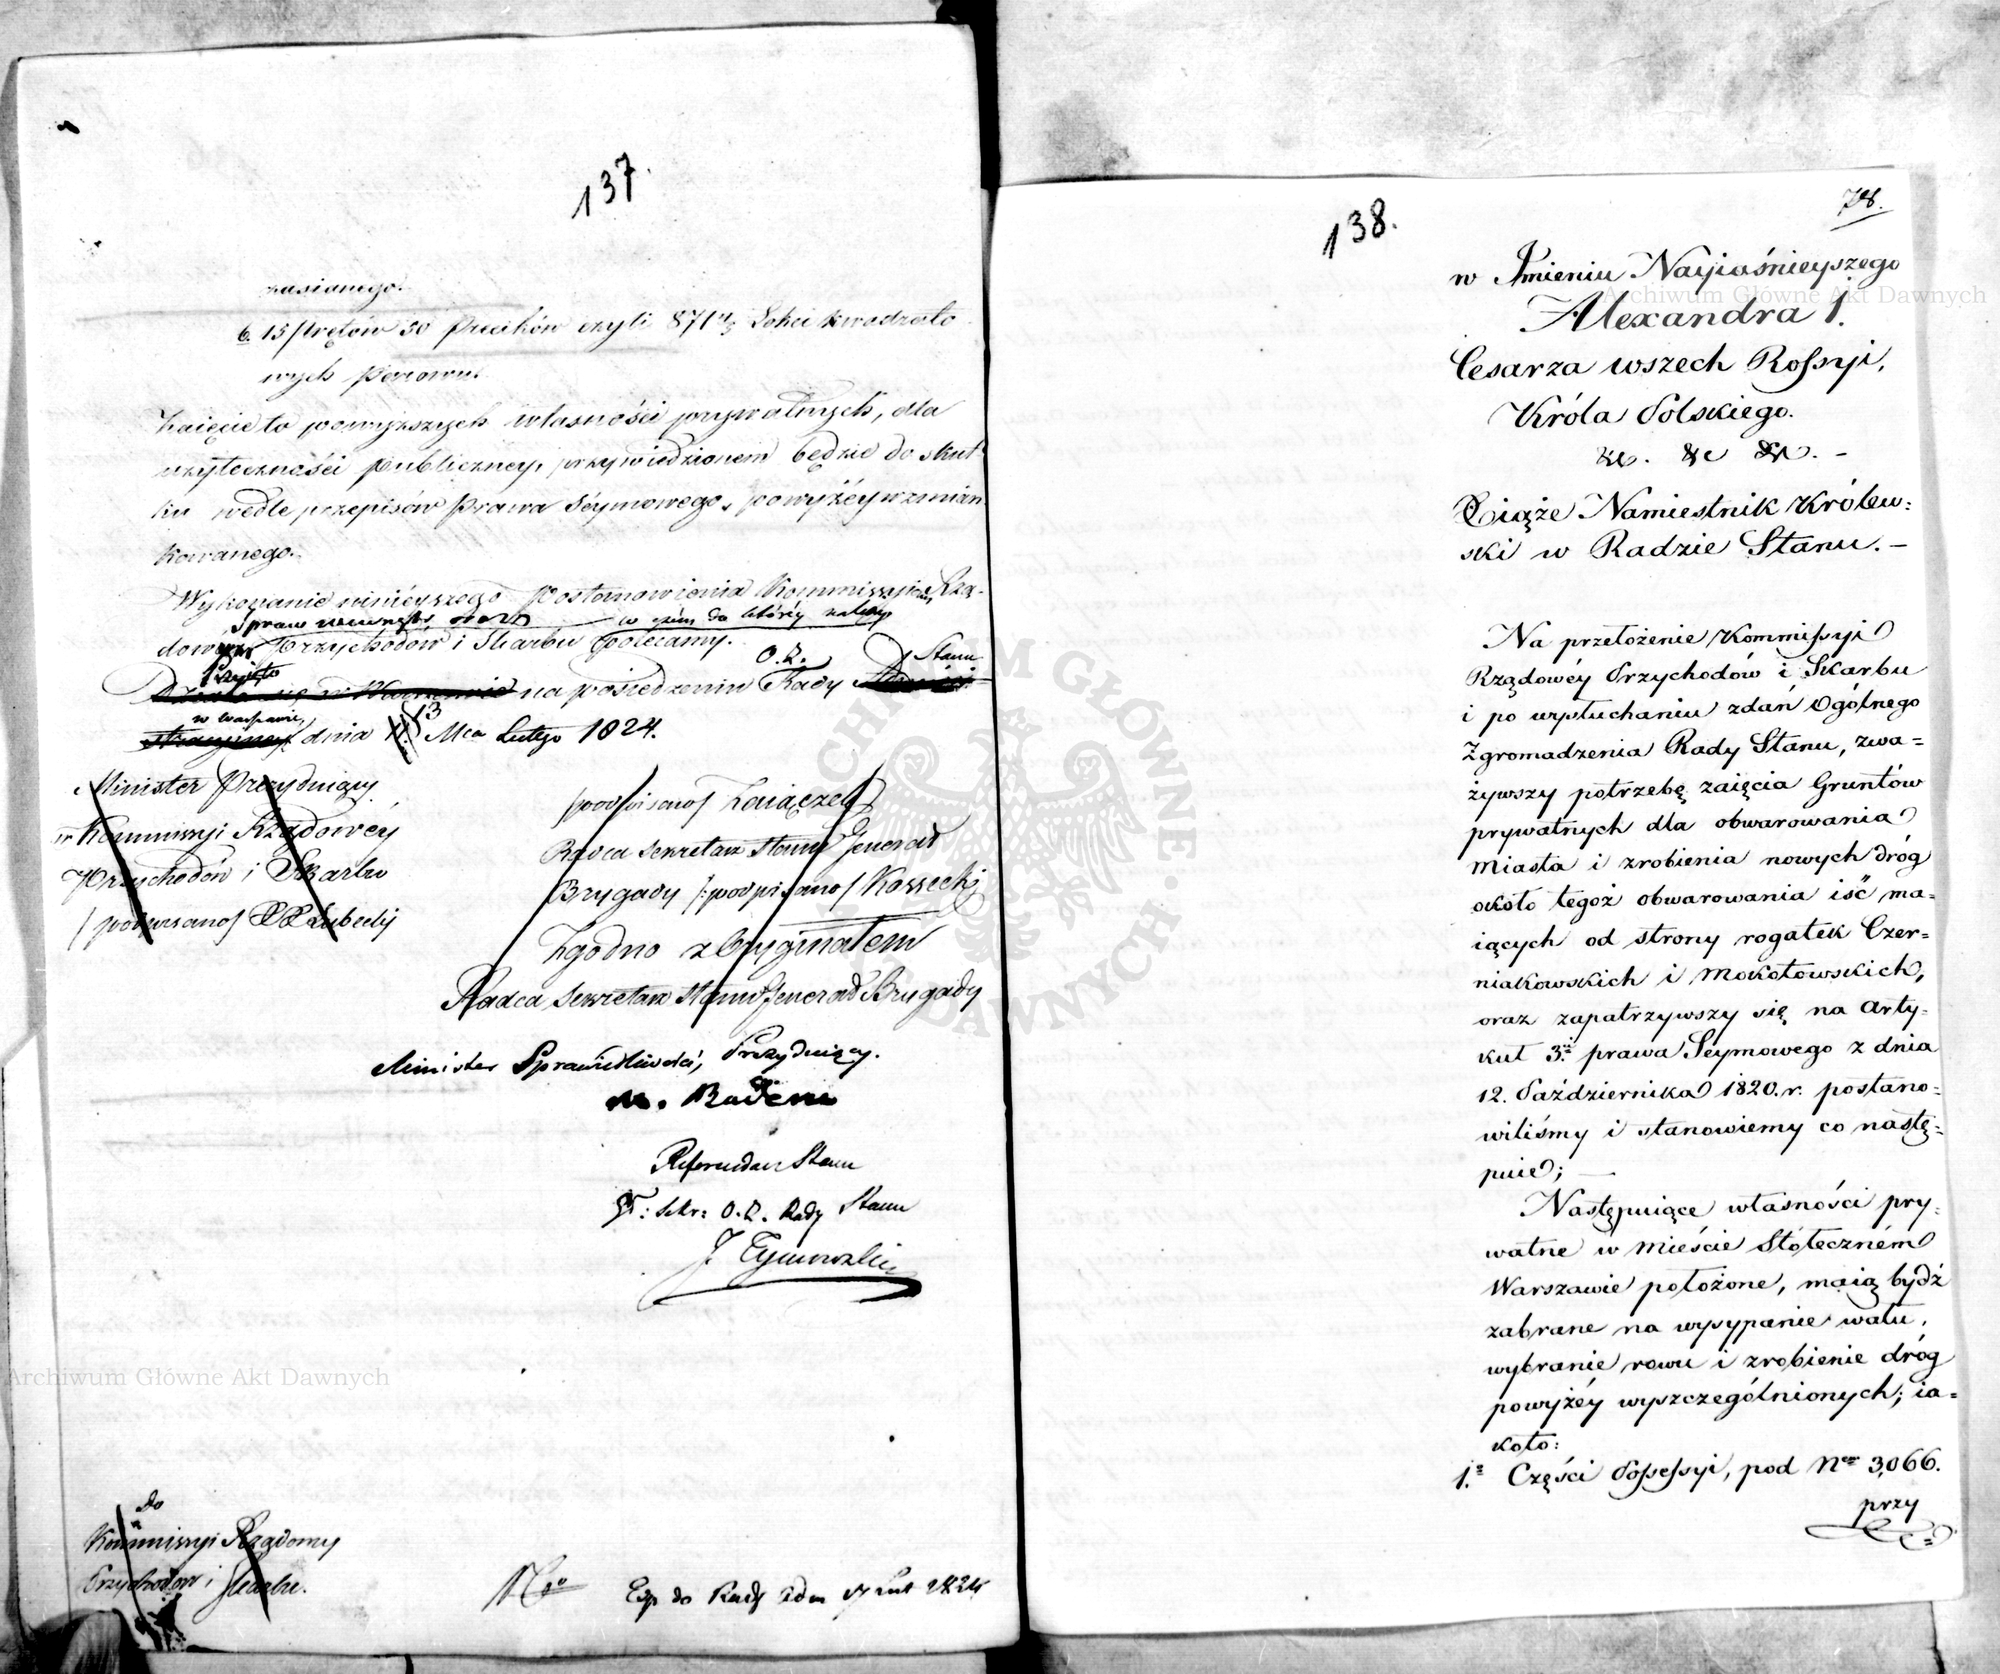 137.
zasianego.
b. 15 prętów 50 Pręcików czyli 871 Łokci kwadrato
wych
Zaięcie to powyższych własności prywatnych, dla
użyteczności publiczney, przywiedzionem będzie do skut
ku wedle przepisów Prawa Séymowego, powyżéy wzmian
kowanego.
Wykonanie ninieyszego Postanowienia Kommissyiom Rzą-
Spraw wewnętr: oraz w czém do któréy należy
dowéy Przychodów i Skarbu polecamy.
O. Z. Stanu
na posiedzeniu Rady
w Warszawie,
dnia 13 Mca Lutego 1824.
Minister Prezyduiący
w Kommissyi Rządowéy
Przychodów i Skarbu
/podpisano/ Lubecki
/podpisano/ Zaiączek
Radca Sekretarz Stanu Jenerał
Brygady /:podpisano/ Kossecki
Zgodno z Oryginałem
Radca Sekretarz Stanu Jenerał Brygady
Minister Sprawiedliwości, Prezyduiący.
M. Badeni
Referendarz Stanu
Sekr: O. Z. Rady Stanu
J Tymowski
do
Kommissyi Rządowey
Przychodow i Skarbu.
Exp do Rady Adm 17 Lut 1824
138.
78.
w Imieniu Nayiaśnieyszego
Alexandra 1.
Cesarza wszech Rossyi,
Króla Polskiego.
&c. &c &c. -
Xiąże Namiestnik Królew:
ski w Radzie Stanu. -
Na przełożenie Kommissyi
Rządowéy Przychodów i Skarbu
i po wysłuchaniu zdań Ogólnego
Zgromadzenia Rady Stanu, zwa=
żywszy potrzebę zaięcia Gruntów
prywatnych dla obwarowania
Miasta i zrobienia nowych dróg
około tegoż obwarowania iść ma=
iących od strony rogatek Czer=
niakowskich i Mokotowskich,
oraz zapatrzywszy się na Arty=
kuł 3.i prawa Seymowego z dnia
12. Października 1820. r. postano=
wiliśmy i stanowiemy co nastę=
puie; —
Następuiące własności pry=
watne w Mieście Stołeczném
Warszawie położone, maią bydź
zabrane na wysypanie wału,
wybranie rowu i zrobienie dróg
powyżéy wyszczególnionych; ia=
koto:
1.= Części Possessyi, pod Nem 3,066.
przy
Archiwum Główne Akt Dawnych
Archiwum Główne Akt Dawnych
ARCHIWUM GŁÓWNE AKT DAWNYCH